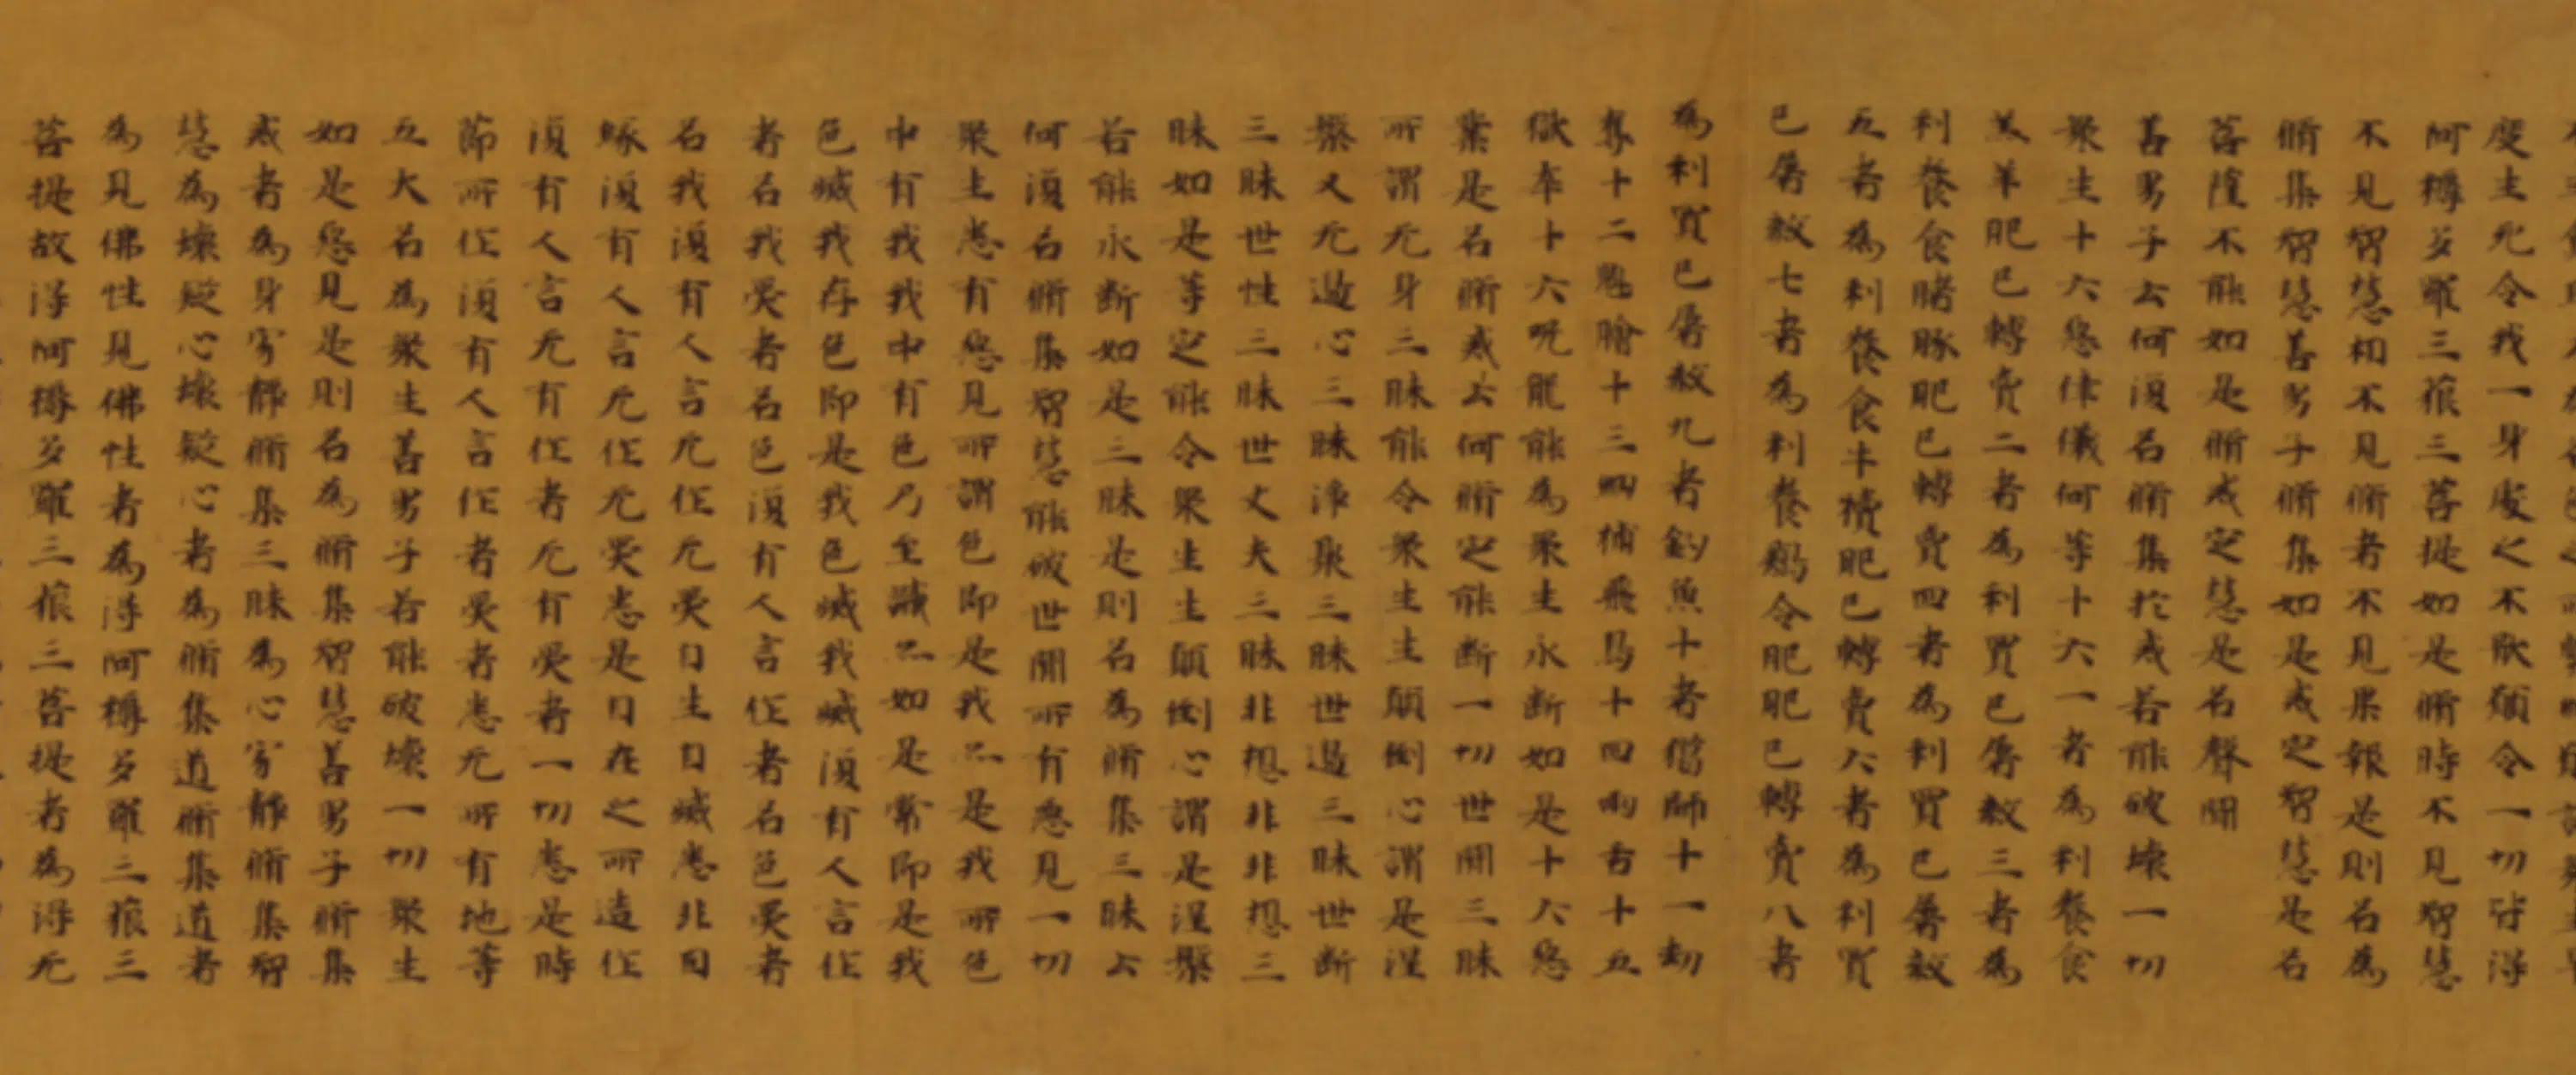 度生死令我一身處之不厭願令一切皆得
阿耨多羅三藐三菩提如是脩時不見智慧
不見智慧相不見脩者不見果報是則名為
脩集智慧善男子脩集如是戒定智慧是名
菩薩不能如是脩戒定慧是名聲聞
善男子云何復名脩集於戒若能破壞一切
眾生十六惡律儀何等十六一者為利養食
羔羊肥已轉賣二者為利買已屠煞三者為
利養食豬豚肥已轉賣四者為利買已屠煞
五者為利養食牛犢肥已轉賣六者為利買
已屠煞七者為利養鷄令肥肥已轉賣八者
為利買已屠煞九者釣魚十者獵師十一劫
奪十二魁膾十三網捕飛鳥十四兩舌十五
獄卒十六呪龍能為眾生永斷如是十六惡
業是名脩戒云何脩定能斷一切世間三昧
所謂无身三昧能令眾生生顛倒心謂是涅
槃又无邊心三昧淨聚三昧世邊三昧世斷
三昧世性三昧世丈夫三昧非想非非想三
昧如是等定能令眾生生顛倒心謂是涅槃
若能永斷如是三昧是則名為脩集三昧云
何復名脩集智慧能破世間所有惡見一切
眾生悉有惡見所謂色即是我亦是我所色
中有我我中有色乃至識亦如是常即是我
色滅我存色即是我色滅我滅復有人言作
者名我受者名色復有人言作者名色受者
名我復有人言无作无受自生自滅悉非因
緣復有人言无作无受悉是自在之所造作
復有人言无有作者无有受者一切悉是時
節所作復有人言作者受者悉无所有地等
五大名為眾生善男子若能破壞一切眾生
如是惡見是則名為脩集智慧善男子脩集
戒者為身寂靜脩集三昧為心寂靜脩集智
慧為壞疑心壞疑心者為脩集道脩集道者
為見佛性見佛性者為得阿耨多羅三藐三
菩提故得阿耨多羅三藐三菩提者為得无